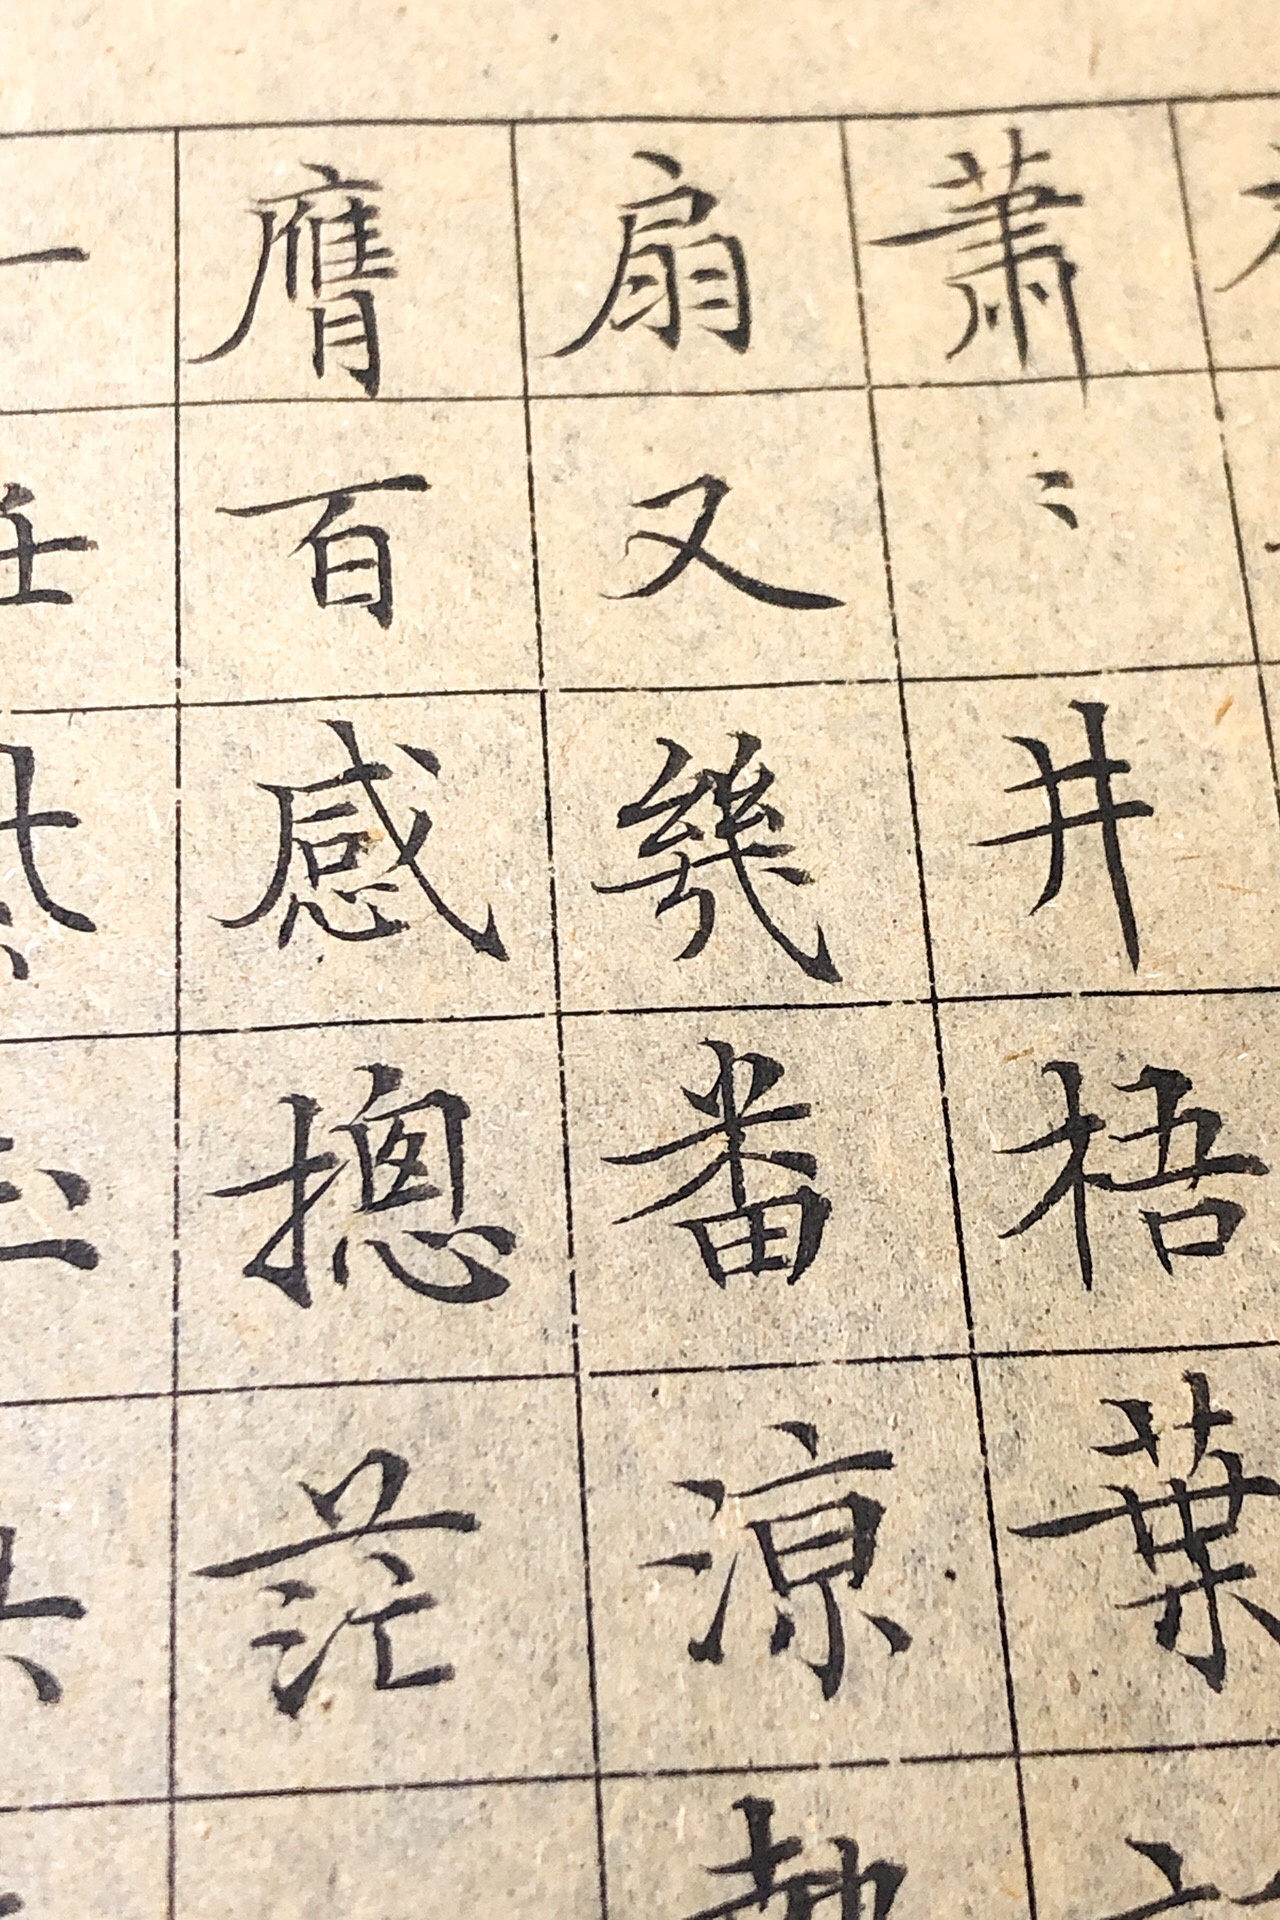 蕭〻井梧葉
扇又幾番涼熱
膺百感摠茫
一任